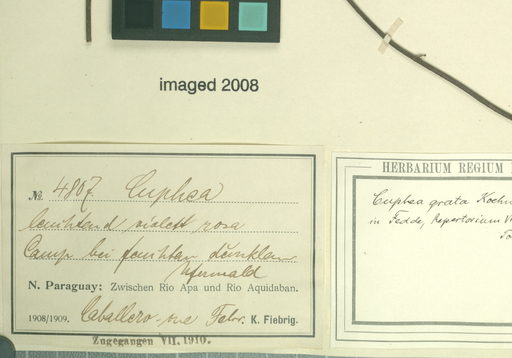 imaged 2008
No. 4807 Cuphea
leuchtend violett rosa
Camp bei feuchtem dunklem
Uferwald
N. Paraguay: Zwischen Rio Apa und Rio Aquidaban.
1908/1909. Caballero-cue Febr. K. Fiebrig.
Zugegangen VII. 1910.
HERBARIUM REGIUM
Cuphea grata Koehne
in Fedde, Repertorium